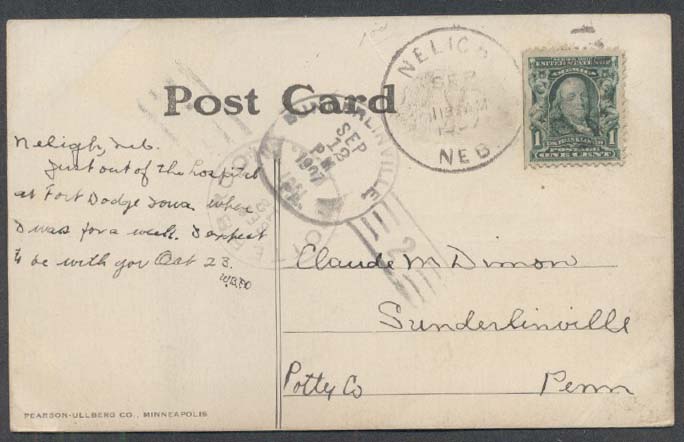 Post Card
NELIGH
SEP
11 AM
1907
NEB.
UNITED STATES OF AMERICA
FRANKLIN
POSTAGE
1 1
ONE CENT
SUNDERLINVILLE
SEP
12
PM
1907
PA.
BROOK
2
Neligh, Neb.
Just out of the hospital
at Fort Dodge Iowa where
I was for a week. I expect
to be with you Oct 23.
W.B.
Claude M Dimon
Sunderlinville
Potty Co Penn
PEARSON-ULLBERG CO., MINNEAPOLIS